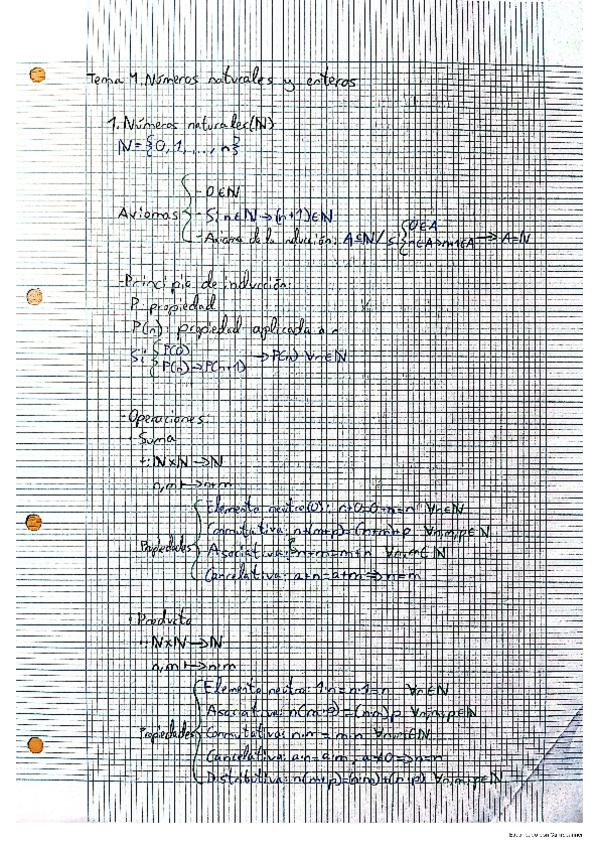 Tema 1. Números naturales y enteros
1. Números naturales (ℕ)
ℕ = {0, 1, ..., n}
- 0 ∈ ℕ
Axiomas - Si n ∈ ℕ → (n+1) ∈ ℕ
- Axioma de la inducción: A ⊆ ℕ / Si { 0 ∈ A
n ∈ A → n+1 ∈ A → A = ℕ
- Principio de inducción:
P: propiedad
P(n): propiedad aplicada a n
Si { P(0)
P(n) → P(n+1) → P(n) ∀n ∈ ℕ
- Operaciones:
· Suma
+: ℕ×ℕ → ℕ
n, m ↦ n+m
Elemento neutro (0): n+0=0+n=n ∀n ∈ ℕ
Conmutativa: n+(m+p)=(n+m)+p ∀n,m,p ∈ ℕ
Propiedades Asociativa: n+m=m+n ∀n,m ∈ ℕ
Cancelativa: a+n=a+m ⇒ n=m
· Producto
·: ℕ×ℕ → ℕ
n, m ↦ n·m
Elemento neutro: 1·n=n·1=n ∀n ∈ ℕ
Asociativa: n(m·p)=(n·m)p ∀n,m,p ∈ ℕ
Propiedades Conmutativa: n·m=m·n ∀n,m ∈ ℕ
Cancelativa: a·n=a·m, a≠0 ⇒ n=m
Distributiva: n(m+p)=(n·m)+(n·p) ∀n,m,p ∈ ℕ